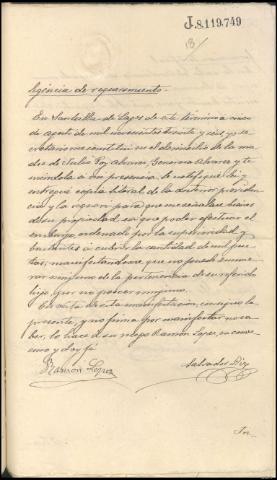 J.8.119.749
13/
Diligencia de requerimiento.
En Santalla de Lago de este término a cinco
de agosto de mil novecientos treinta y seis, yo se
cretario me constituí en el domicilio de la ma
dre de Julio Poy Alvarez, Generosa Alvarez y te
niéndola a mi presencia, le notifiqué leí y
entregué copia literal de la anterior providen
cia y la requerí para que me señalase bienes
de su propiedad en que poder efectuar el
embargo ordenado por la superioridad y
bastantes a cubrir la cantidad de mil pese
tas, manifestándome que no puede enume
rar ninguno de la pertenencia de su referido
hijo, por no poseer ninguno.
Es cuanto manifestó, consigno la
presente, y no firma por manifestar no sa
ber, lo hace a su ruego Ramón Lopez, su conve
cino y doy fe
Ramón Lopez
Salvador